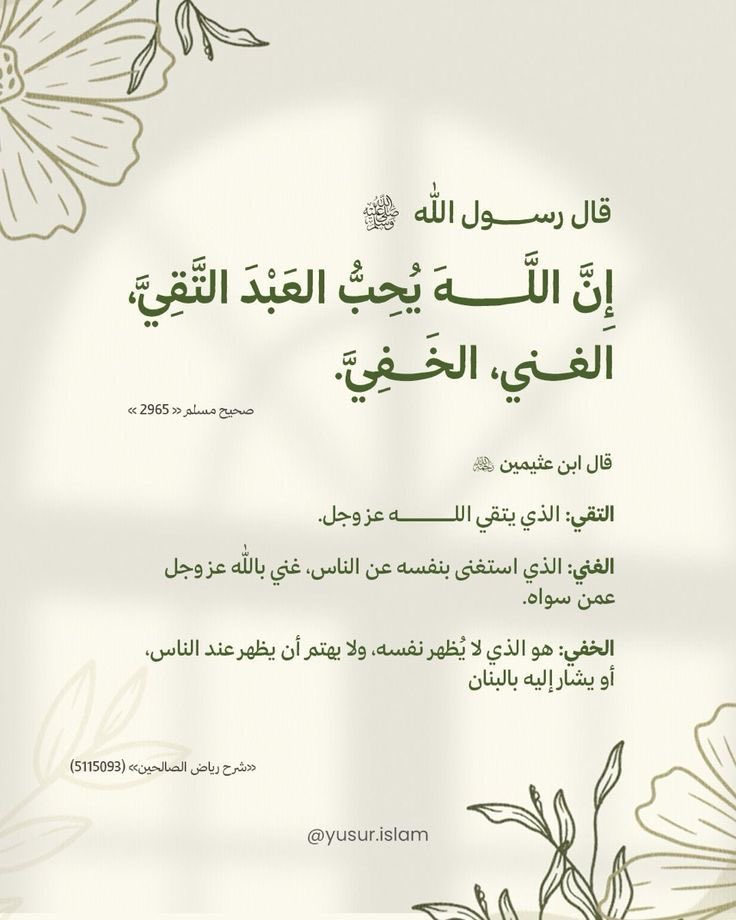 قال رســـول الله ﷺ
إِنَّ اللَّـــهَ يُحِبُّ العَبْدَ التَّقِيَّ،
الغـــني، الخَـــفِيَّ.
صحيح مسلم « 2965 »
قال ابن عثيمين رحمه الله
التقي: الذي يتقي اللـــــه عز وجل.
الغني: الذي استغنى بنفسه عن الناس، غني بالله عز وجل
عمن سواه.
الخفي: هو الذي لا يُظهر نفسه، ولا يهتم أن يظهر عند الناس،
أو يشار إليه بالبنان
«شرح رياض الصالحين» (5115093)
@yusur.islam